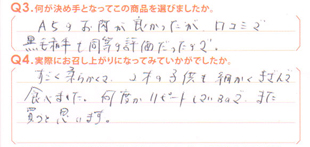 Q3.何が決め手となってこの商品を選びましたか。
A5のお肉が良かったが、口コミで
黒毛和牛と同等の評価だったので。
Q4.実際にお召し上がりになってみていかがでしたか。
すごく柔らかくて、2才の子供も細かくきざんで
食べました。何度かリピートしているので、また
買うと思います。